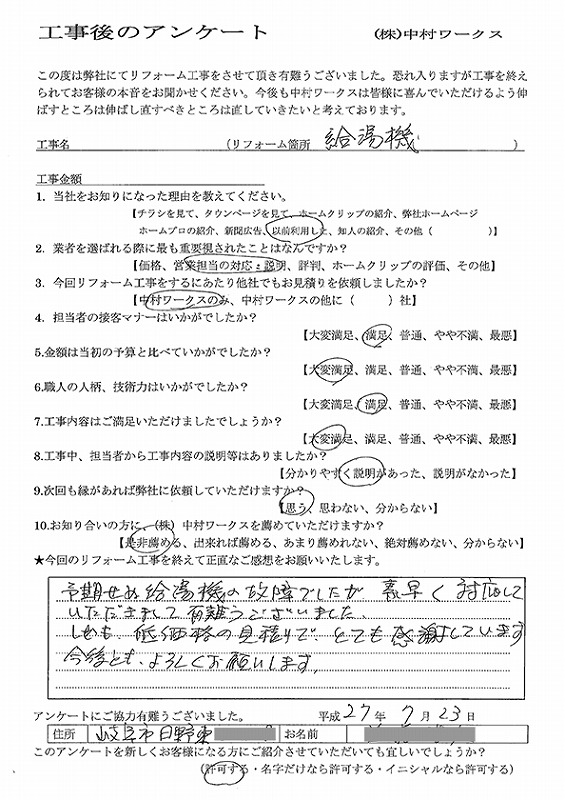 工事後のアンケート　(株)中村ワークス
この度は弊社にてリフォーム工事をさせて頂き有難うございました。恐れ入りますが工事を終え
られてお客様の本音をお聞かせください。今後も中村ワークスは皆様に喜んでいただけるよう伸
ばすところは伸ばし直すべきところは直していきたいと考えております。
工事名　(リフォーム箇所　給湯機　)
工事金額
1. 当社をお知りになった理由を教えてください。
【チラシを見て、タウンページを見て、ホームクリップの紹介、弊社ホームページ
ホームプロの紹介、新聞広告、以前利用した、知人の紹介、その他（　　　）】
2. 業者を選ばれる際に最も重要視されたことはなんですか？
【価格、営業担当の対応・説明、評判、ホームクリップの評価、その他】
3. 今回リフォーム工事をするにあたり他社でもお見積りを依頼しましたか？
【中村ワークスのみ、中村ワークスの他に（　　）社】
4. 担当者の接客マナーはいかがでしたか？
【大変満足、満足、普通、やや不満、最悪】
5.金額は当初の予算と比べていかがでしたか？
【大変満足、満足、普通、やや不満、最悪】
6.職人の人柄、技術力はいかがでしたか？
【大変満足、満足、普通、やや不満、最悪】
7.工事内容はご満足いただけましたでしょうか？
【大変満足、満足、普通、やや不満、最悪】
8.工事中、担当者から工事内容の説明等はありましたか？
【分かりやすく説明があった、説明がなかった】
9.次回も縁があれば弊社に依頼していただけますか？
【思う、思わない、分からない】
10.お知り合いの方に、(株) 中村ワークスを薦めていただけますか？
【是非薦める、出来れば薦める、あまり薦めれない、絶対薦めない、分からない】
★今回のリフォーム工事を終えて正直なご感想をお願いいたします。
予期せぬ給湯機の故障でしたが 素早く 対応して
いただきまして有難うございました。
しかも、低価格の見積りで、とても感謝しています
今後とも、よろしくお願いします。
アンケートにご協力有難うございました。　平成27年7月23日
住所　岐阜市日野東　お名前
このアンケートを新しくお客様になる方にご紹介させていただいても宜しいでしょうか？
(許可する・名字だけなら許可する・イニシャルなら許可する)